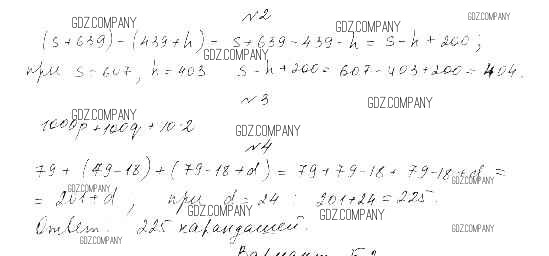 №2
(s + 639) - (439 + h) = s + 639 - 439 - h = s - h + 200;
при s = 607, h = 403 s - h + 200 = 607 - 403 + 200 = 404.
№3
1000p + 100q + 10·2
№4
79 + (79 - 18) + (79 - 18 + d) = 79 + 79 - 18 + 79 - 18 + d =
= 201 + d, при d = 24 : 201 + 24 = 225.
Ответ. 225 карандашей.
GDZ.COMPANY
GDZ.COMPANY
GDZ.COMPANY
GDZ.COMPANY
GDZ.COMPANY
GDZ.COMPANY
GDZ.COMPANY
GDZ.COMPANY
GDZ.COMPANY
GDZ.COMPANY
GDZ.COMPANY
GDZ.COMPANY
GDZ.COMPANY